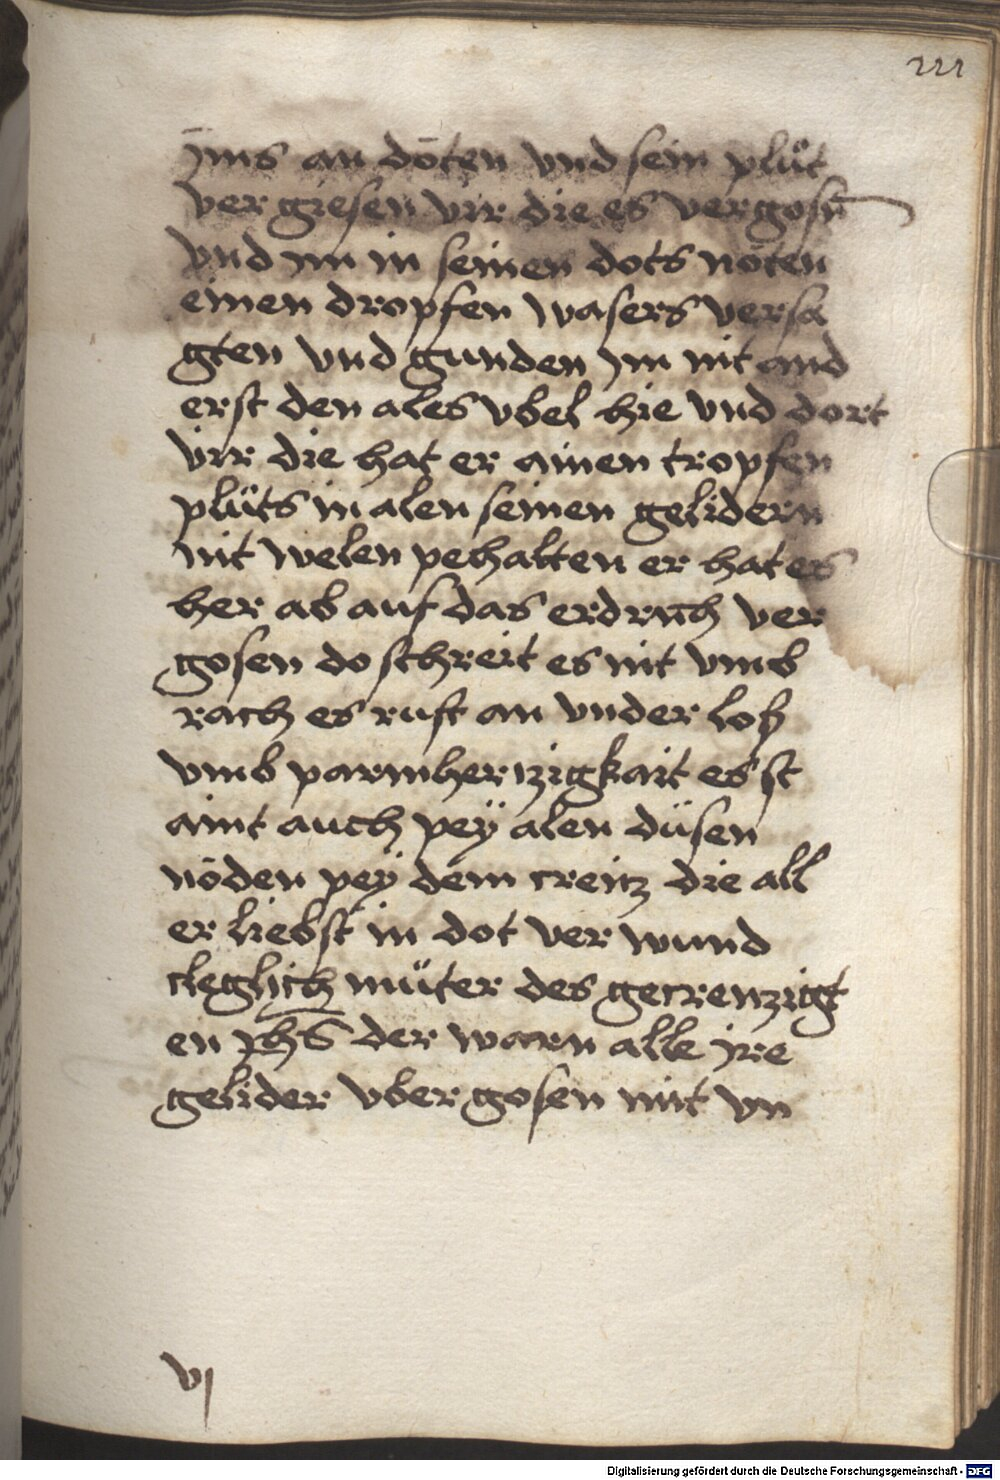 221
jms an dötten vnd sein plüt
ver giesen vir die es vergosn
vnd jm in seinen dots nöten
einen dropfen wasers versa
gten vnd gunden jm nit and
erst den ales vbel hie vnd dort
vir die hat er ainen tropfen
plüts in alen seinen gelidern
nit welen pehalten er hat es
her ab auf das erdrich ver
gosen do schreit es nit vmb
rach es ruft an vnder loß
vmb parmherzigkait es st
aint auch pey alen düsen
nöden pey dem creitz die all
er liebst in dot ver wund
cleglich müter des gecreuzigt
en jhs der warn alle jre
gelider vber gosen mit vn
vj
Digitalisierung gefördert durch die Deutsche Forschungsgemeinschaft - DFG